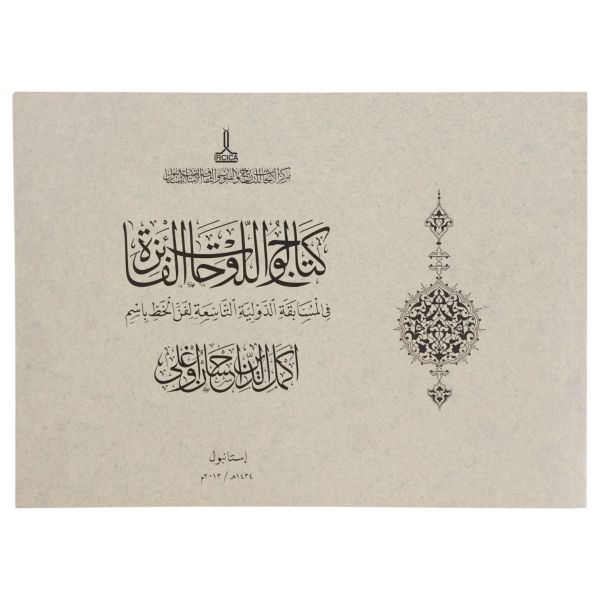 IRCICA
مركز الأبحاث للتاريخ والفنون والثقافة الإسلامية باستانبول
كتالوج اللوحات الفائزة
في المسابقة الدولية التاسعة لفن الخط باسم
أكمل الدين إحسان أوغلى
إستانبول
١٤٣٤هـ / ٢٠١٣م